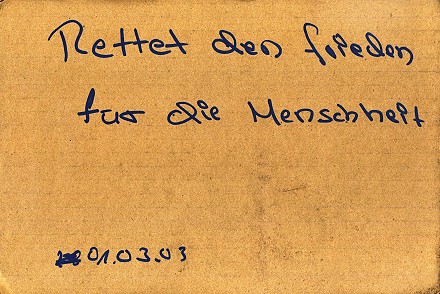 Rettet den frieden
für die Menschheit
01.03.03